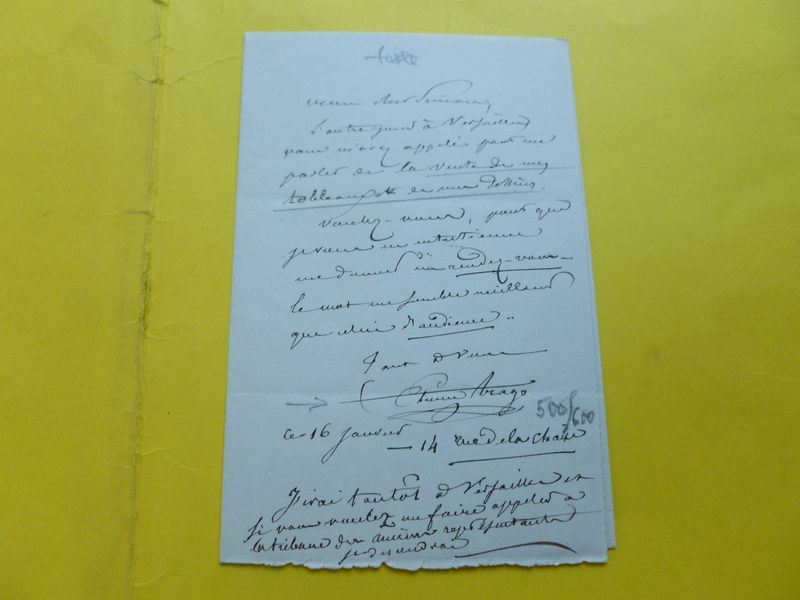 Mon cher Simon,
L'autre jour à Versailles
vous m'avez appelé pour me
parler de la vente de mes
tableaux de mes dessins.
Voulez-vous, pour que
je vous en entretienne
me donner un rendez-vous
le mot me semble meilleur
que celui d'audience..
Tout à vous
Etienne Arago
500/600
ce 16 Janvier
— 14 rue de la Chaise
J'irai tantôt à Versailles et
si vous voulez me faire appeler à
la tribune des anciens représentants
je descendrai